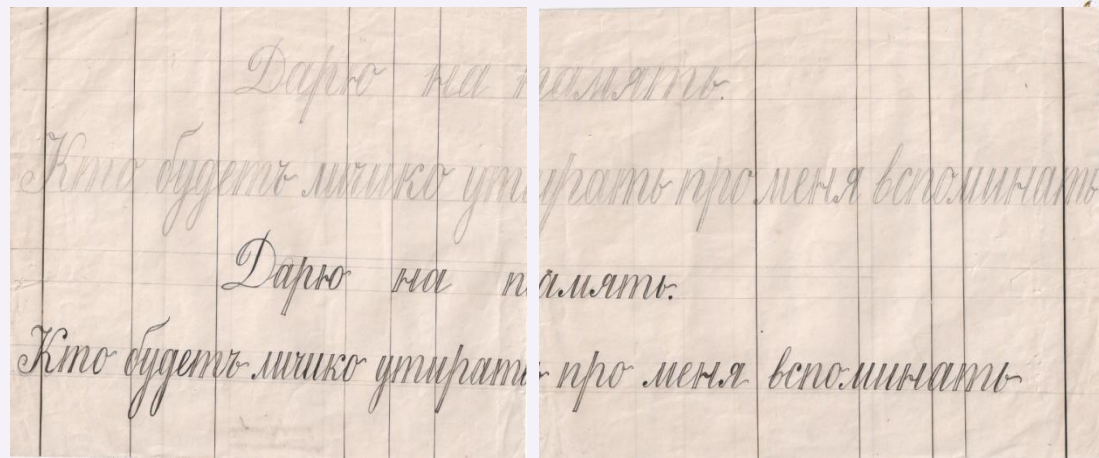 Дарю на память.
Кто будетъ личико утирать про меня вспоминать
Дарю на память.
Кто будетъ личико утирать про меня вспоминать